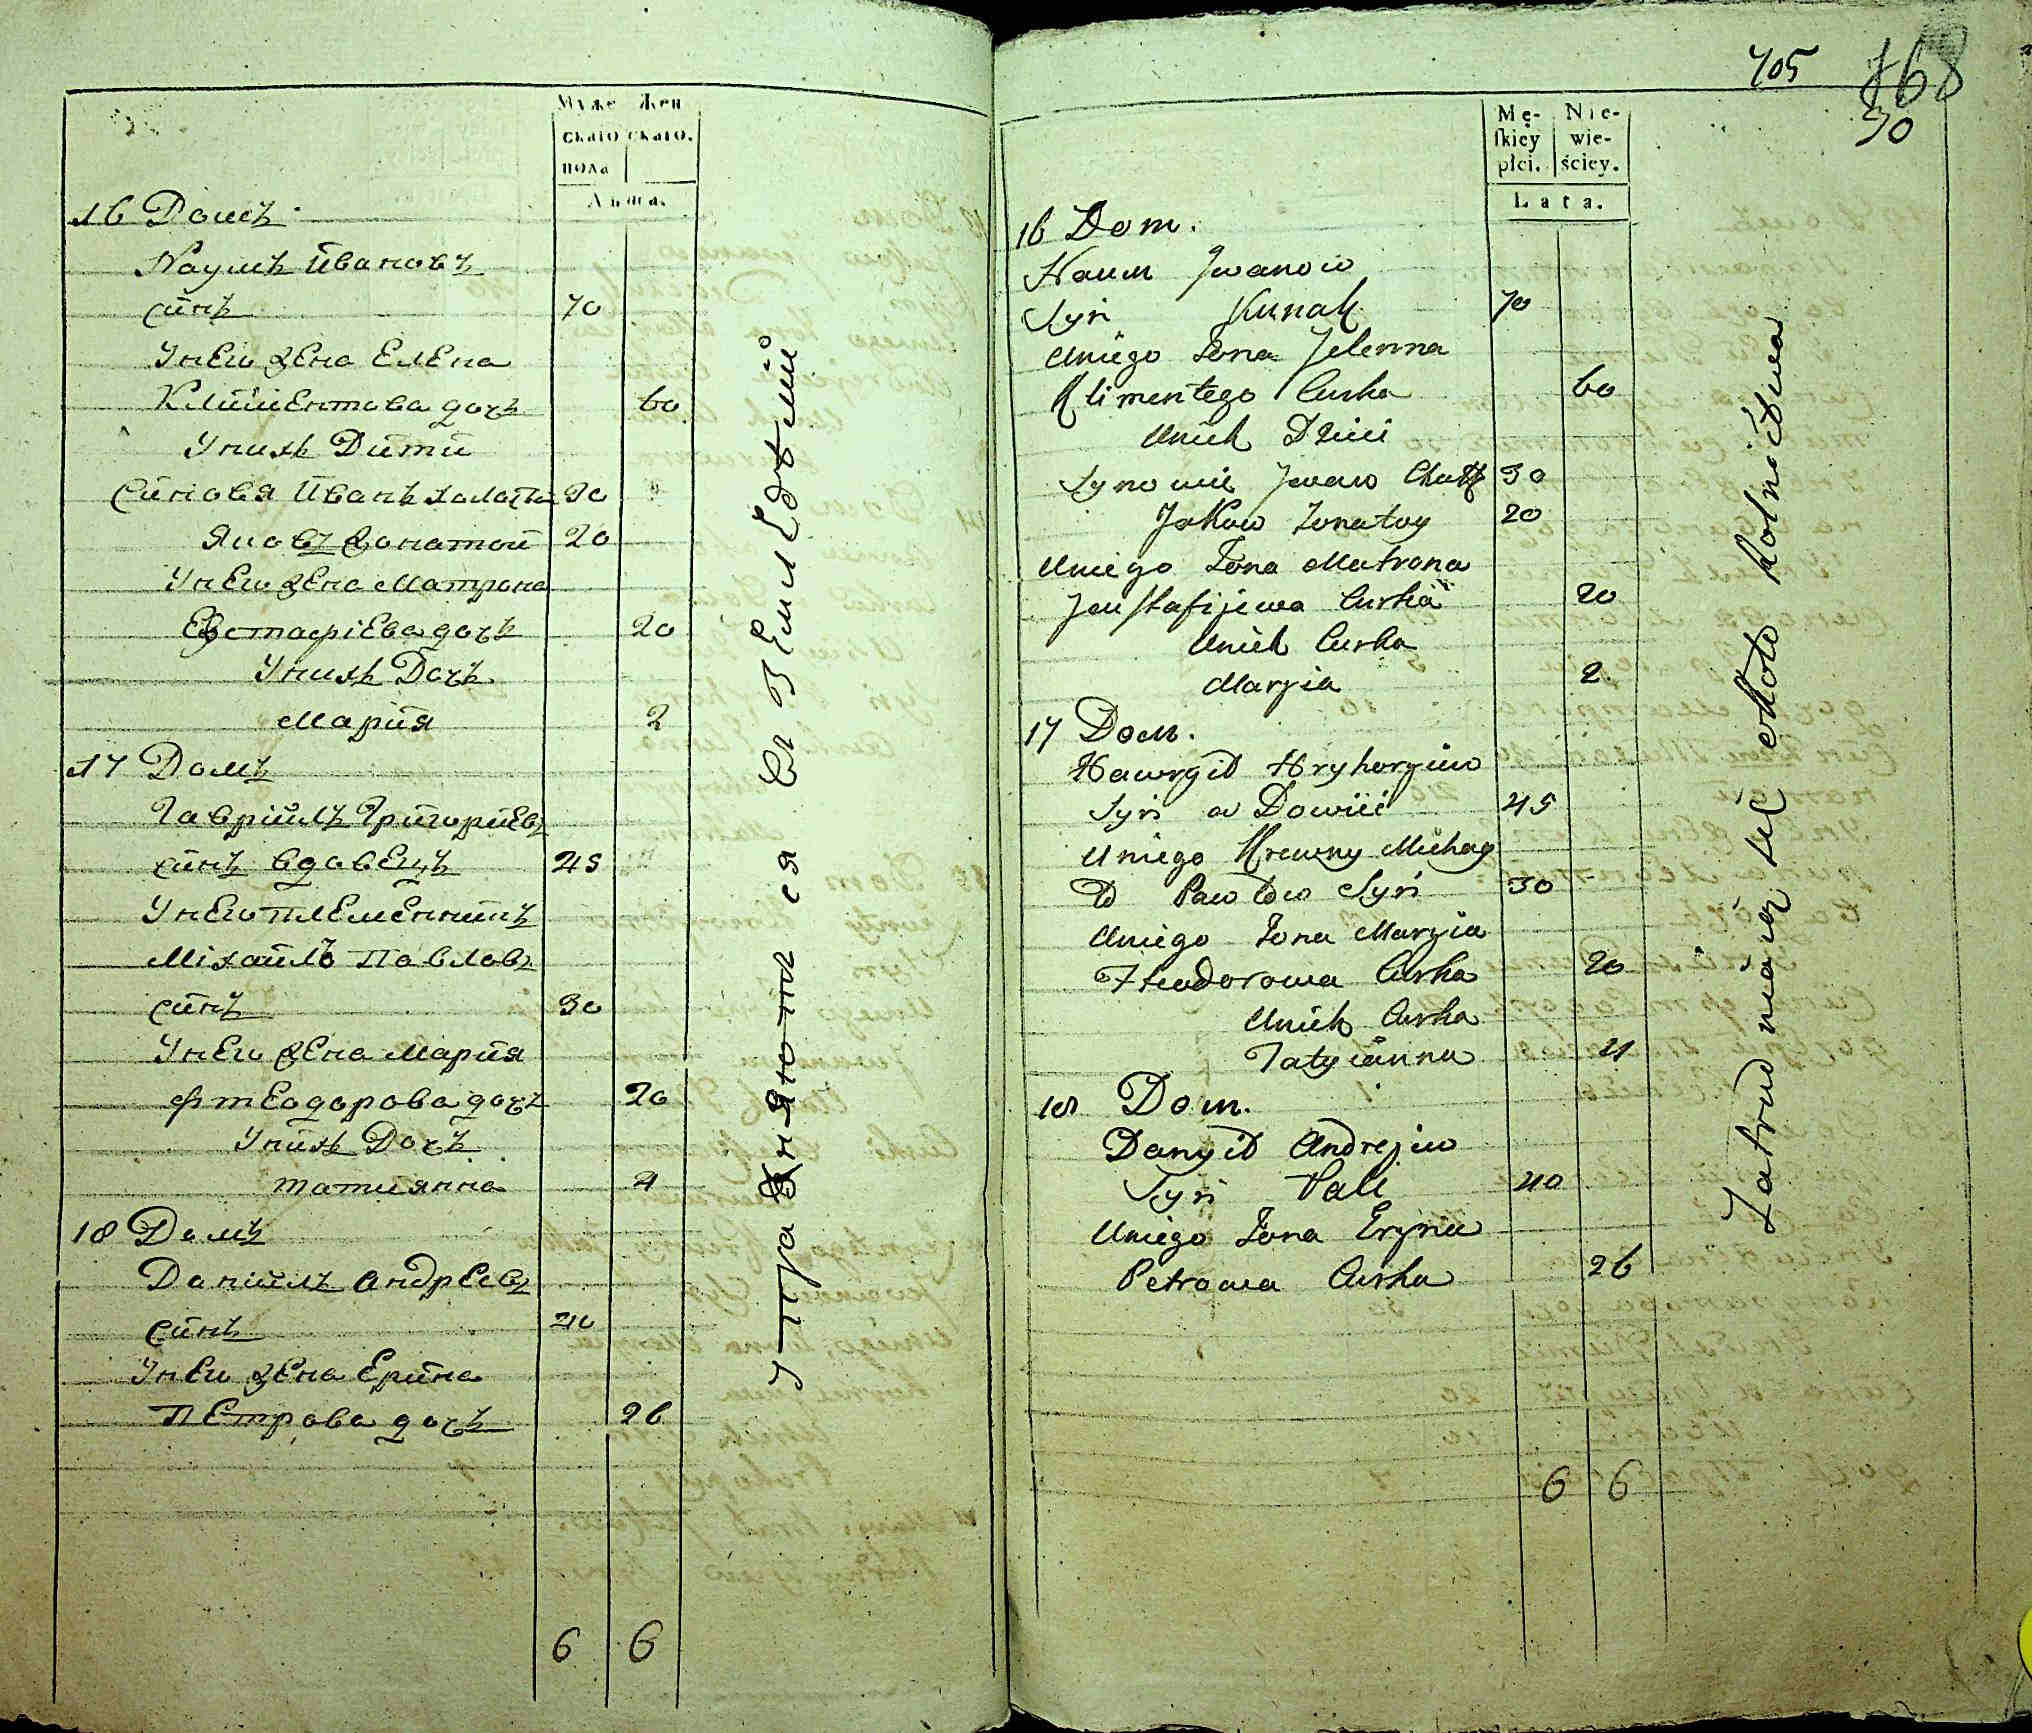 Муже Жен
скаго скаго.
пола
Лѣта.
16 Домъ
Наумъ Ивановъ
синъ 70
Унего жена Елена
Климентова дочь 60
Унихъ Дити
Синовя Иванъ холостъ 30
Яковъ жонатой 20
Унего жена Матрона
Евстафіева дочь 20
Унихъ Дочь
Мария 2
17 Домъ
Гавриилъ Григориевъ
синъ вдовецъ 45
Унего племенникъ
Михаилъ Павловъ
синъ 30
Унего жена Мария
Фтеодорова дочь 20
Унихъ Дочь
татиянна 4
18 Домъ
Даниилъ Андреевъ
синъ 40
Унего жена Ерина
Петрова дочь 26
6 6
упражняются вземледелии
705 768
30
Mę- Nie-
skiéy wie-
płci. ściey.
Lata.
16 Dom.
Naum Jwanow
Syn Kunak 70
Uniego Żona Jelenna
Klimentego Curka 60
Unich Dzieci
Synowie Jwan 30
Jakow Żonatey 20
Uniego Żona Matrona
Jewstafijewa Curka 20
Unich Curka
Maryia 2
17 Dom.
Hawryił Hryhoryiew
Syn 45
Uniego Krewny Michay
ł Pawłow Syn 30
Uniego Żona Maryia
Ftheodorowa Curka 20
Unich Curka
Tatyianna 4
18 Dom.
Danyił Andrejew
Syn 40
Uniego Żona Eryna
Petrowa Curka 26
6 6
Zatrudniaią się około Rolnictwa